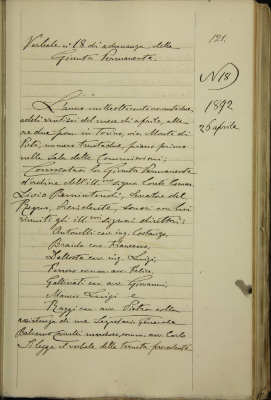 Verbale n° 18 di adunanza della
Giunta Permanente.
121.
N 18
1892
26 aprile
L'anno milleottocentonovantadue,
addì ventisei del mese di aprile, alle
ore due pom. in Torino, via Monte di
Pietà, numero trentadue, piano primo
nella Sala delle Commissioni;
Convocatasi la Giunta Permanente
d'ordine dell'ill.mo signor Conte Comm.
Livio Benintendi, Senatore del
Regno, Presidente, sonosi con lui
riuniti gli ill.mi signori direttori:
Antonelli cav. ing. Costanzo,
Braida cav. Francesco,
cav. ing. Luigi,
Ferrero comm. avv. Felice,
Galleani cav. avv. Giovanni,
Luigi e
Razzi cav. avv. Pietro colla
assistenza di me Segretario Generale
marchese, comm. avv. Carlo
Si legge il verbale della tornata precedente